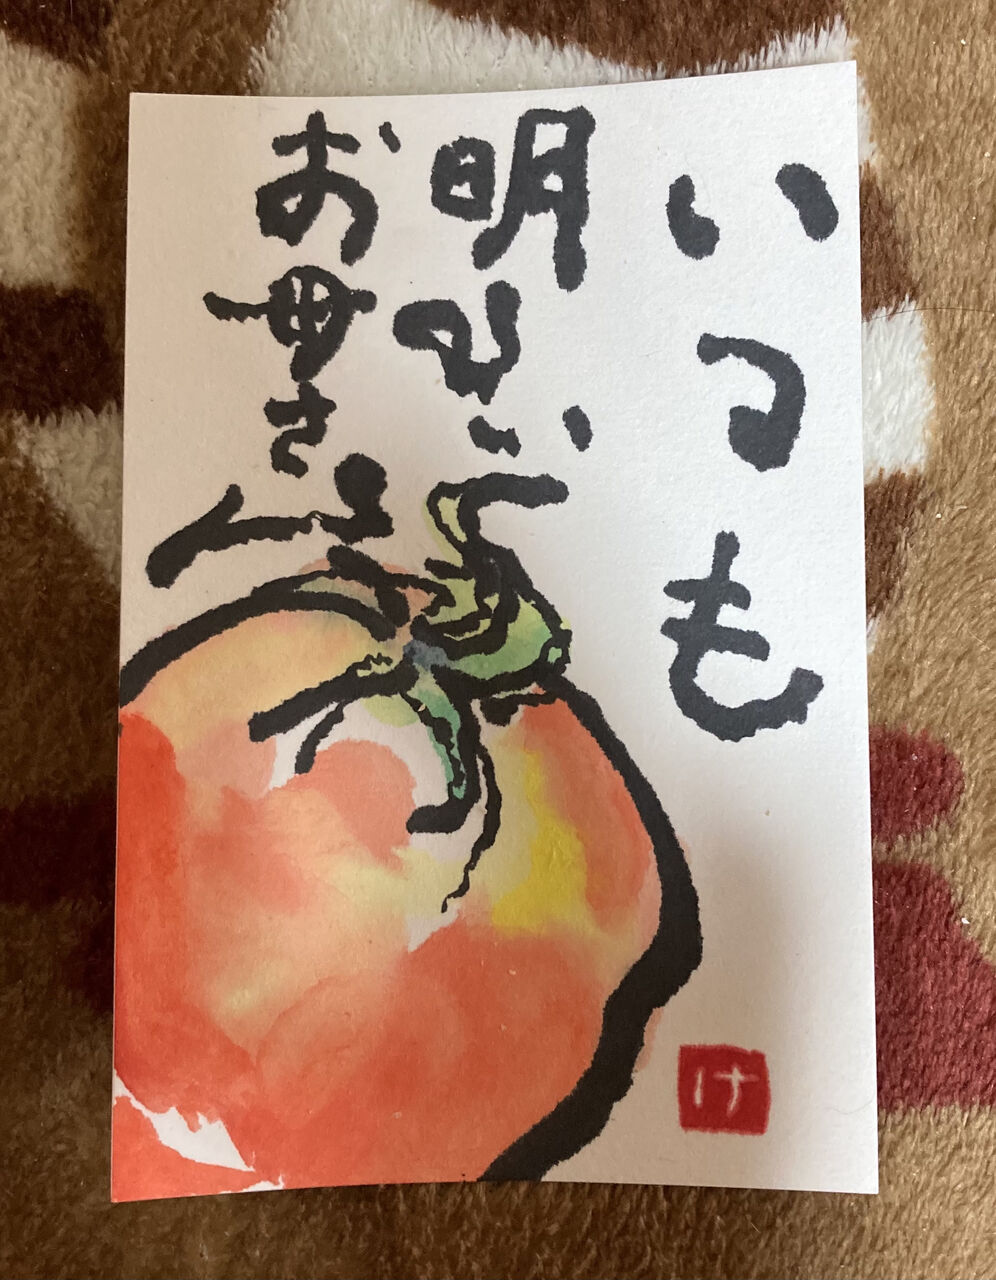 いつも
明るい
お母さん
け